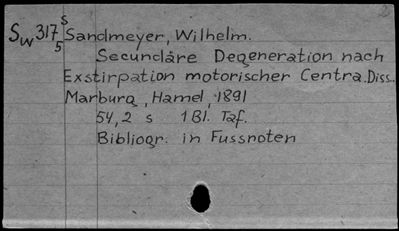 Sw317 s5 Sandmeyer, Wilhelm.
Secundäre Degeneration nach
Exstirpation motorischer Centra. Diss.
Marburg, Hamel, 1891
54, 2 s 1 Bl. Taf.
Bibliogr. in Fussnoten
2